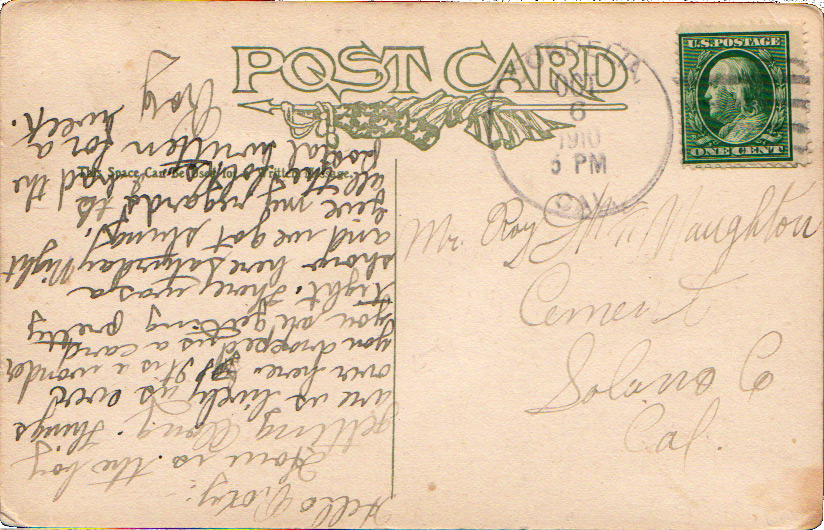 POST CARD
This Space Can Be Used for a Written Message.
U.S. POSTAGE
ONE CENT
OCT
6
1910
5 PM
CAL.
Mr. Roy McNaughton
Cement
Solano Co
Cal.
Hello Roy:
How is the boy
getting along. Things
are as lively as ever
over here. It is a wonder
you dropped us a card
you are getting pretty
tight. There was a
show here Saturday Night
and we got stung.
Give my regards to
all the I had the
postal written for a
week.
Roy